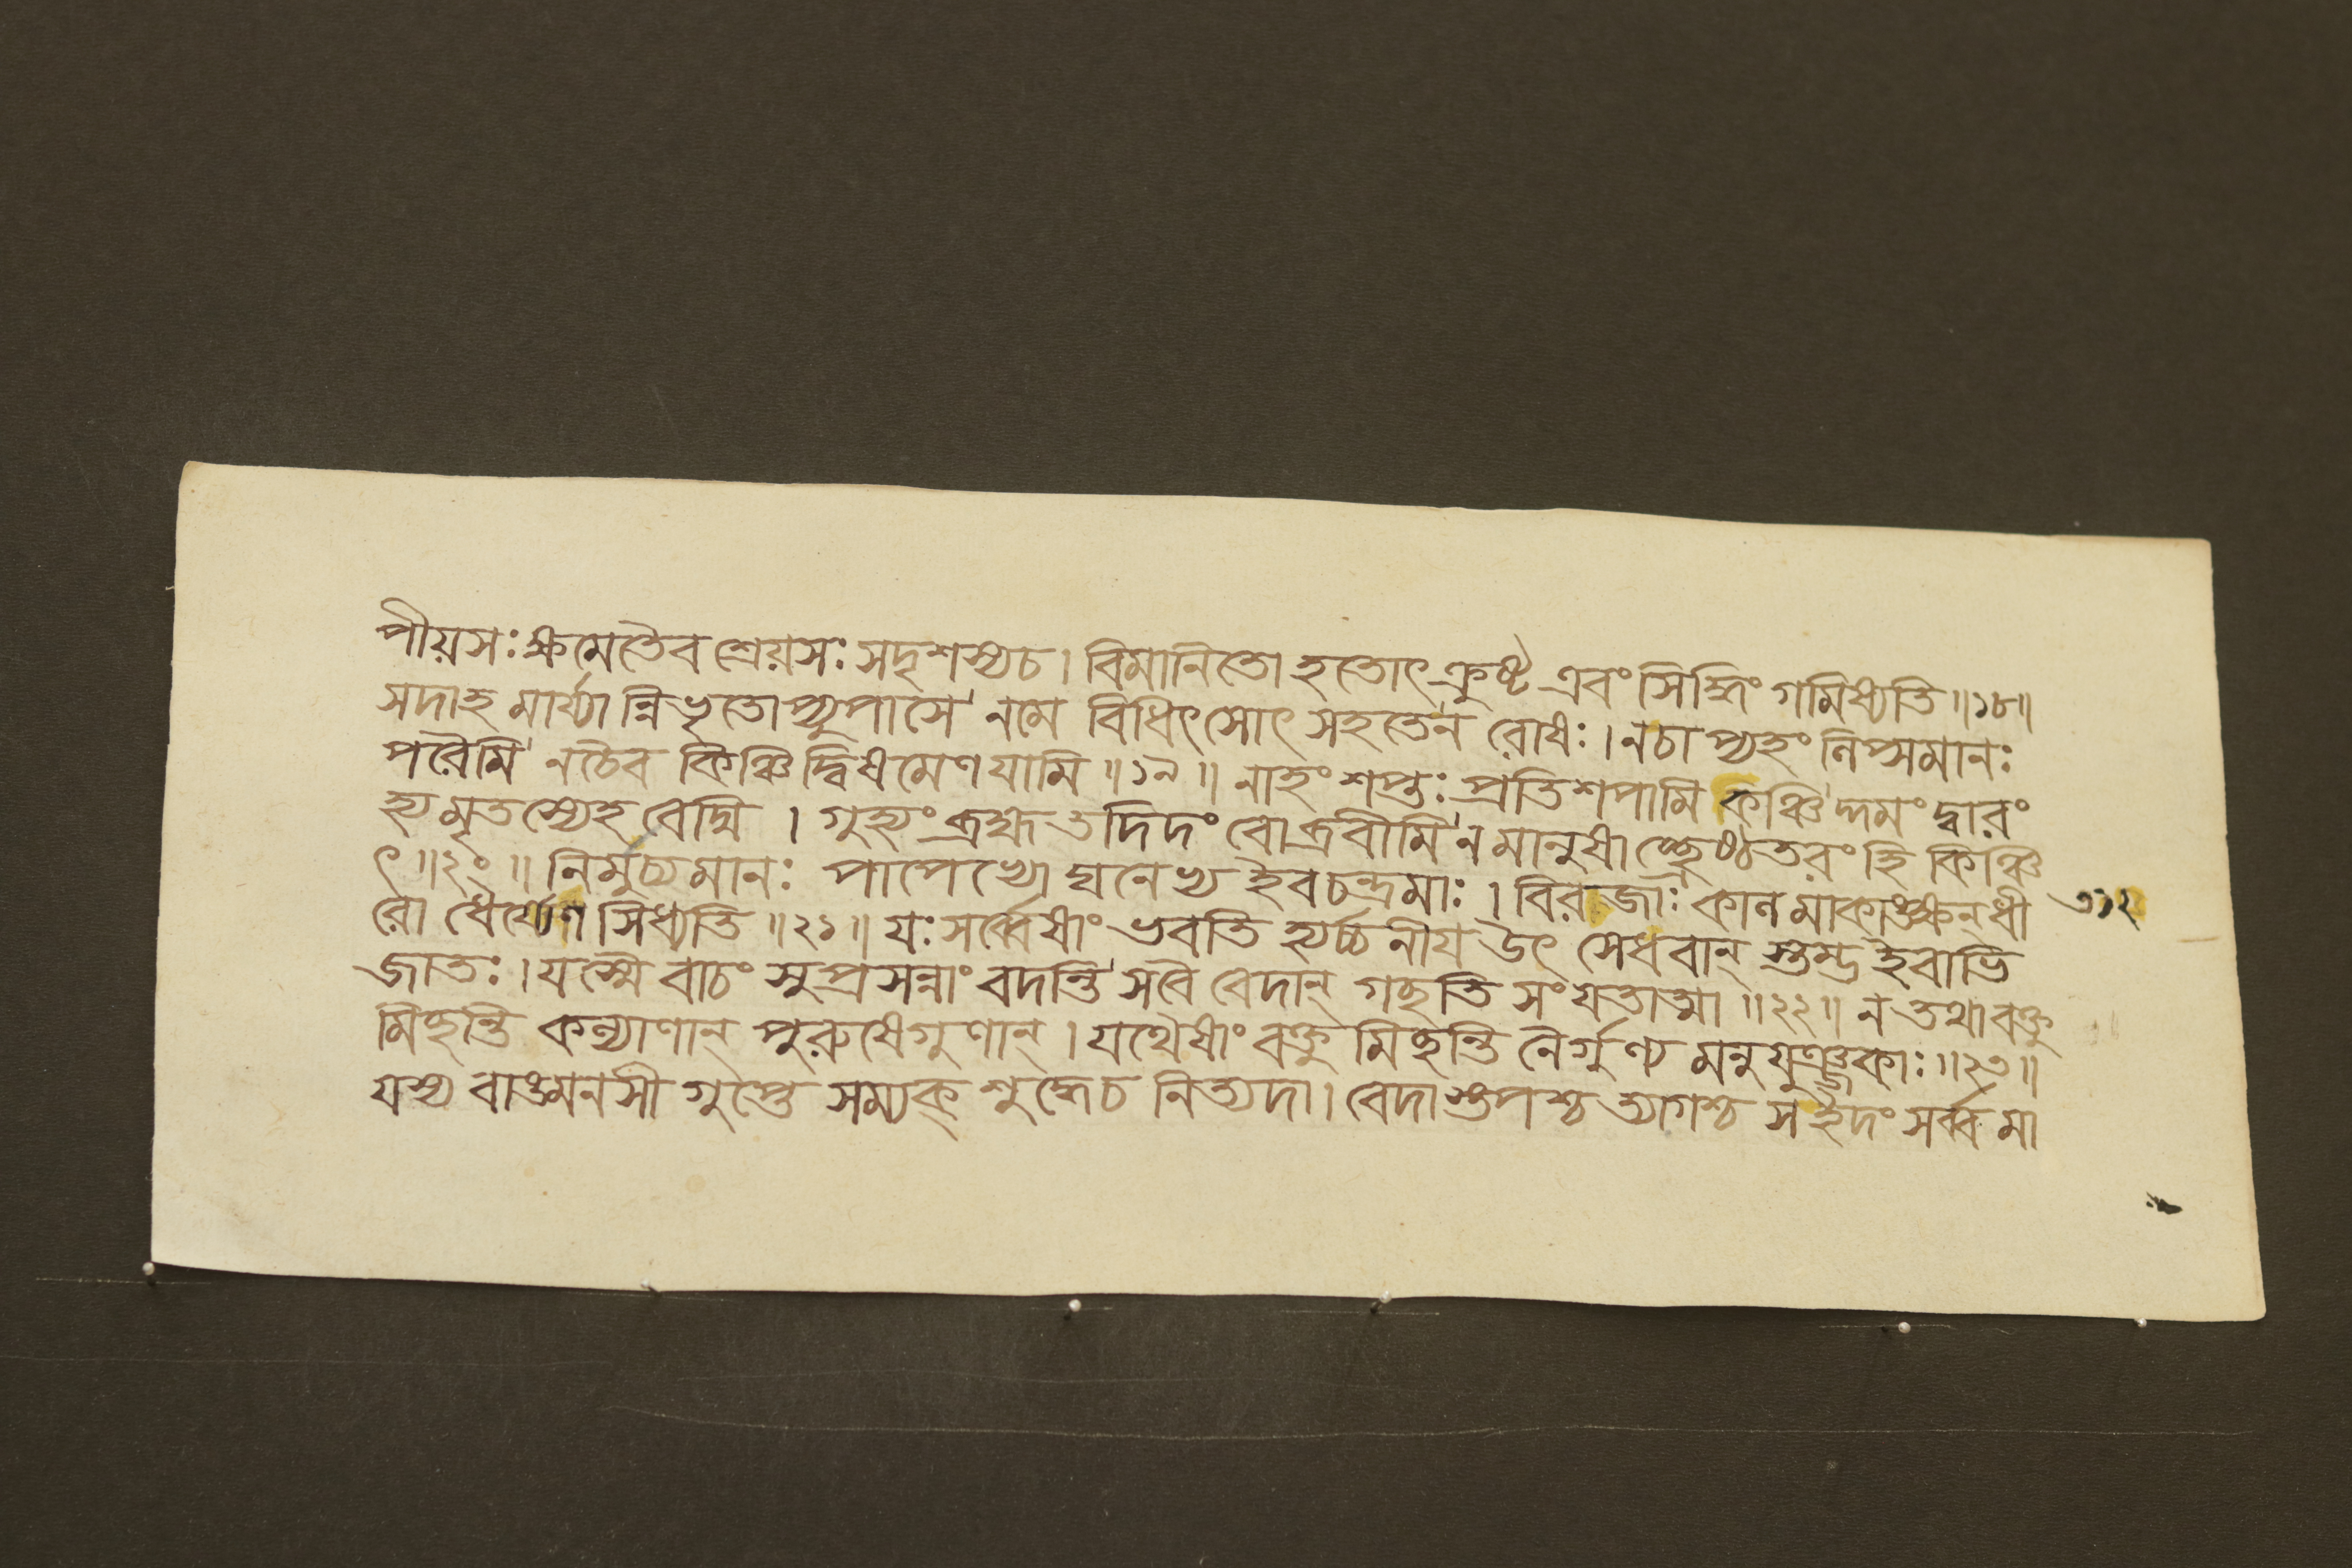 পীয়সঃ ক্ষমেতৈব শ্রেয়সঃ সদৃশস্যচ। বিমানিতো হতোৎক্রুষ্ট এবং সিদ্ধিং গমিষ্যতি॥১৮॥
সদাহ মার্য্যান্নিভৃতোপ্যুপাসে নমে বিধিৎসোৎ সহতেন রোষঃ। নচাপ্যহং লিপ্সমানঃ
পরৈমি নচৈব কিঞ্চিদ্বিষমেণ যামি॥১৯॥ নাহং শপ্তঃ প্রতিশপামি কঞ্চিদ্দমং দ্বারং
হ্যমৃতস্যেহ বেদ্মি। গুহ্যং ব্রহ্ম তদিদং বো ব্রবীমি ন মানুষাচ্ছ্রেষ্ঠতরং হি কিঞ্চি
ৎ॥২০॥ নির্মুচ্যমানঃ পাপেভ্যো ঘনেভ্য ইবচন্দ্রমাঃ। বিরজাঃ কালমাকাঙ্ক্ষন্ ধী
রো ধৈর্য্যেণ সিধ্যতি॥২১॥ যঃ সর্ব্বেষাং ভবতি হ্যর্চ্চনীয় উৎ সেধবান্ স্তম্ভ ইবাভি
জাতঃ। যস্মৈ বাচং সুপ্রসন্নাং বদন্তি সবৈ বেদান্ গচ্ছতি সংযতাত্মা॥২২॥ ন তথা বক্তু
মিচ্ছন্তি কল্যাণান্ পুরুষেগুণান্। যথৈষাং বক্তুমিচ্ছন্তি নৈর্গুণ্য মনুযুঞ্জকাঃ॥২৩॥
যস্য বাঙ্মনসী গুপ্তে সম্যক্ শুদ্ধেচ নিত্যদা। বেদাস্তপশ্চ ত্যাগশ্চ সইদং সর্ব্বমা
৩১২